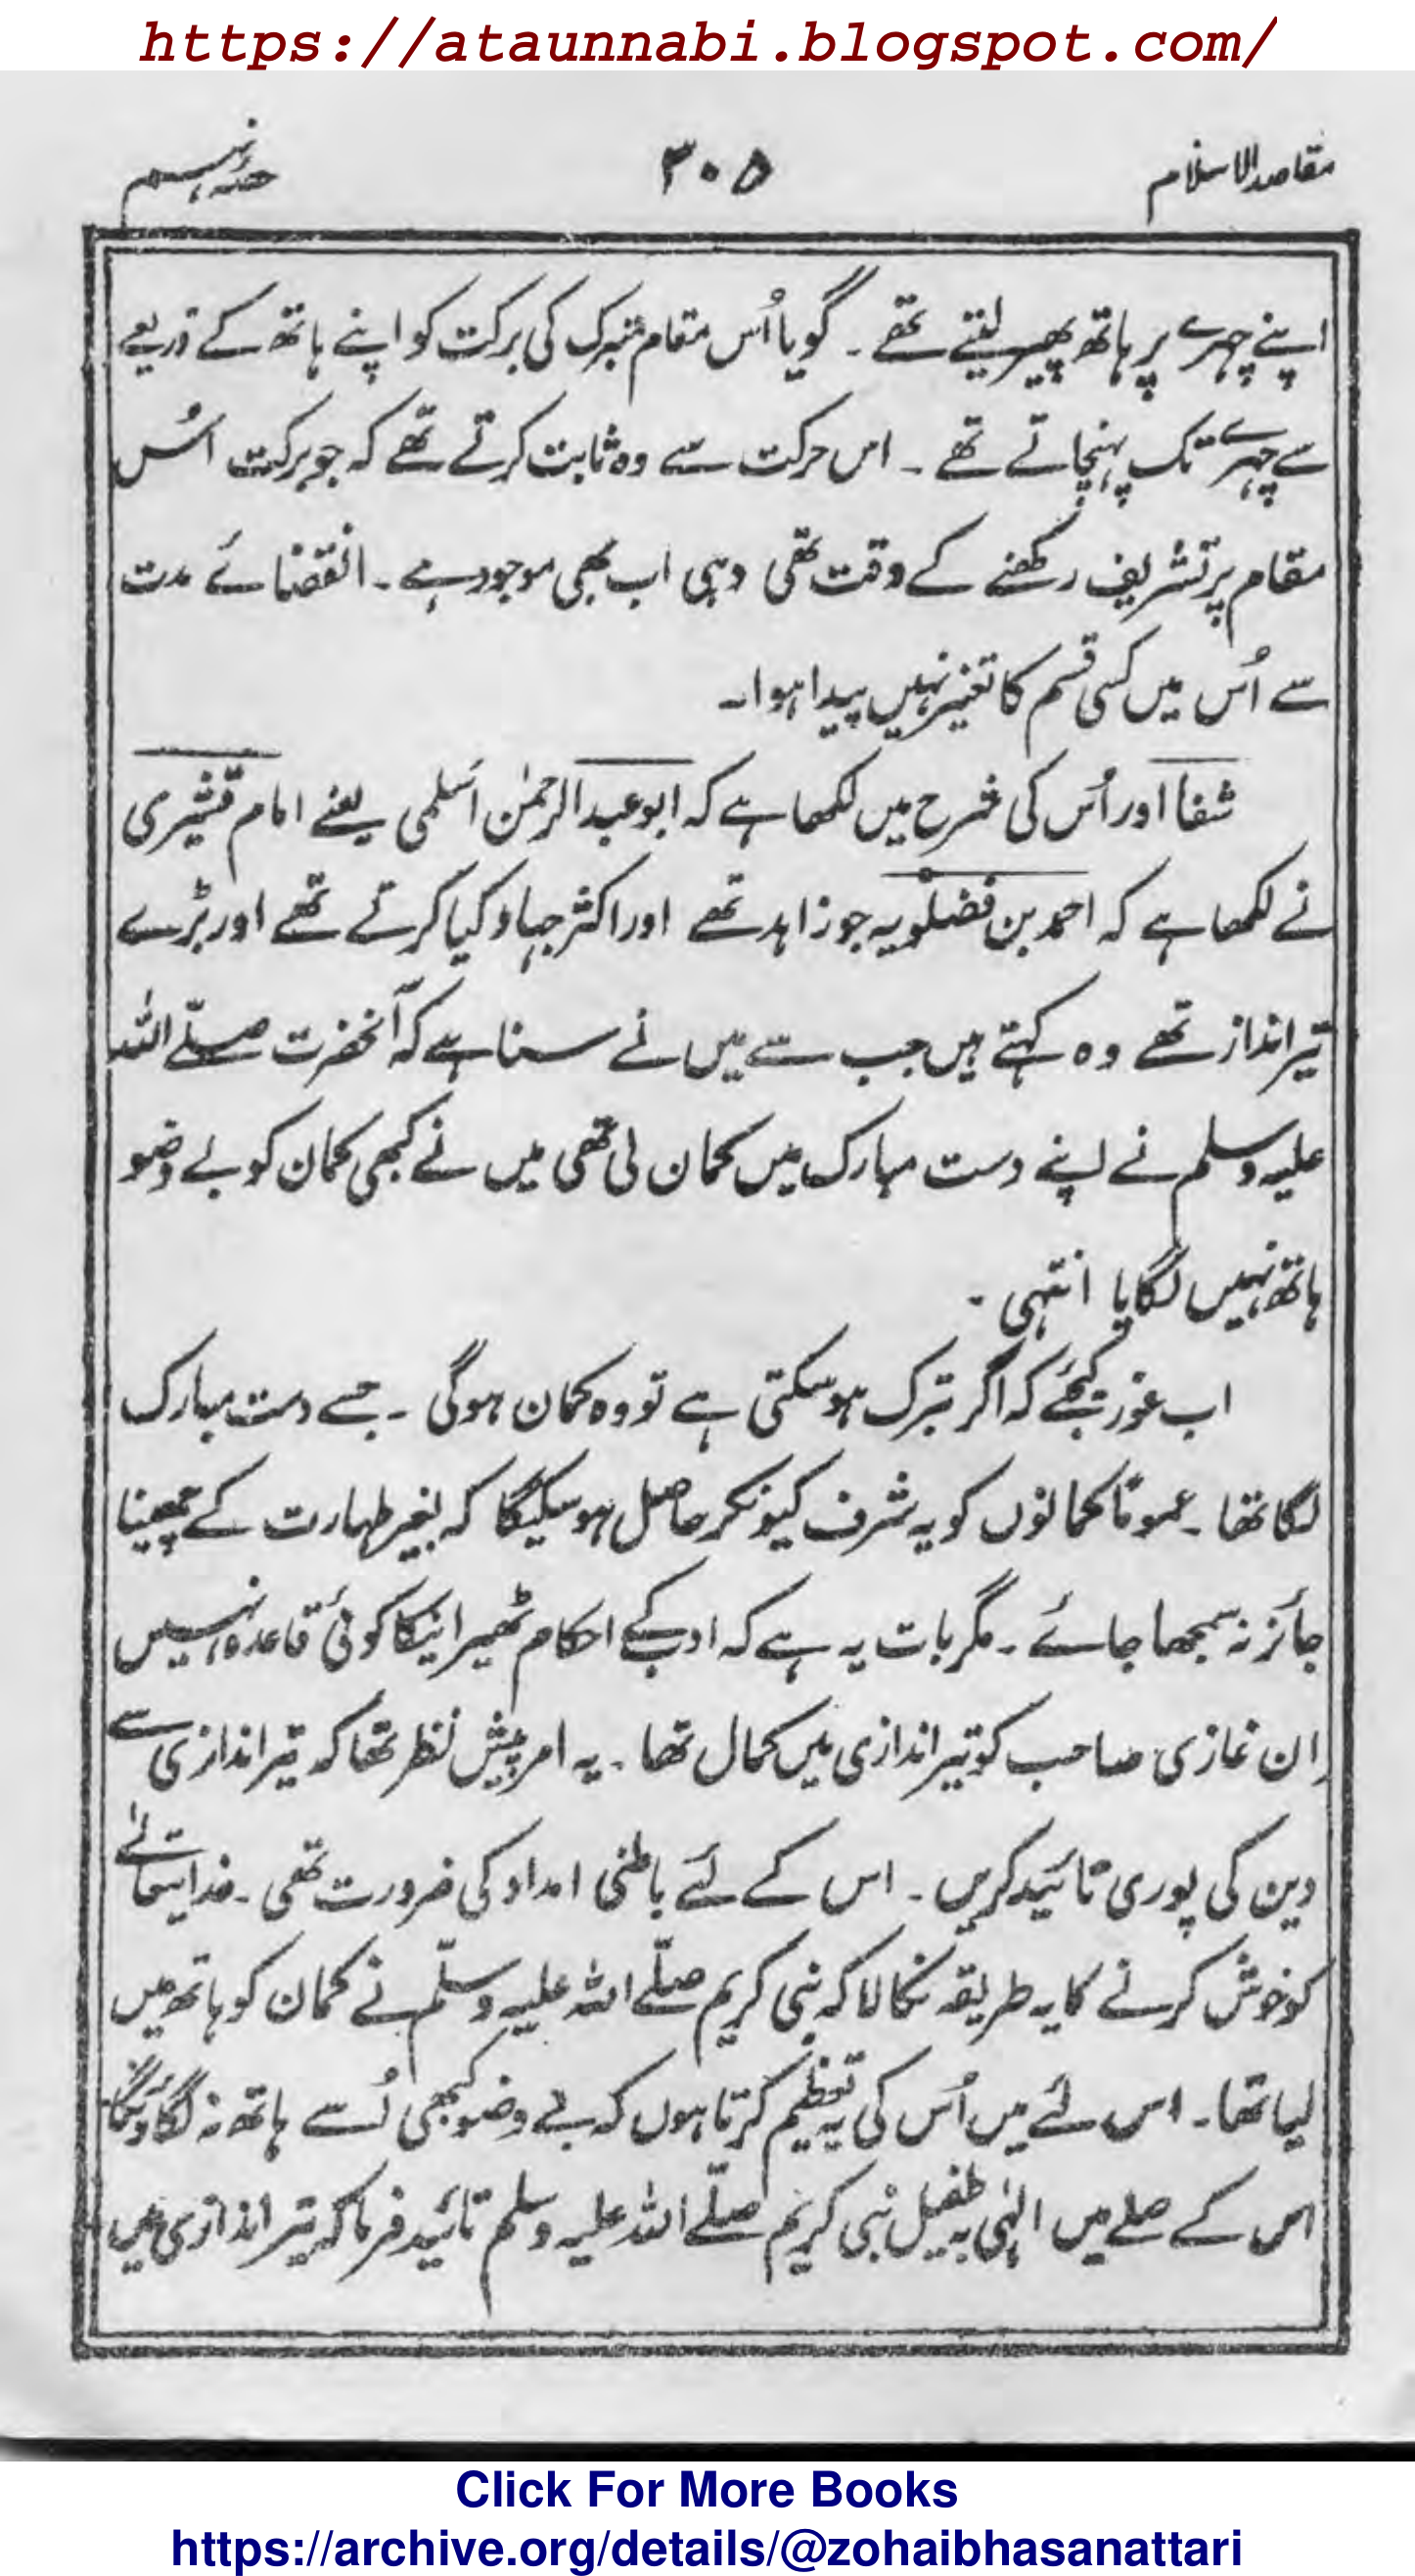 https://ataunnabi.blogspot.com/
مقاصد الاسلام ۳۰۵ حصہ نہم
اپنے چہرے پر ہاتھ پھیر لیتے تھے ۔ گویا اُس مقام متبرک کی برکت کو اپنے ہاتھ کے ذریعے
سے چہرے تک پہنچاتے تھے ۔ اس حرکت سے وہ ثابت کرتے تھے کہ جو برکت اُس
مقام پر تشریف رکھنے کے وقت تھی وہی اب بھی موجود ہے ۔ انقضائے مدت
سے اُس میں کسی قسم کا تغیر نہیں پیدا ہوا ۔
شفا اور اُس کی شرح میں لکھا ہے کہ ابو عبد الرحمٰن اَسلمی یعنے امام قشیری
نے لکھا ہے کہ احمد بن فضلویہ جو زاہد تھے اور اکثر جہاد کیا کرتے تھے اور بڑے
تیر انداز تھے وہ کہتے ہیں جب سے میں نے سنا ہے کہ آنحضرت صلّے اللہ
علیہ وسلم نے اپنے دست مبارک میں کمان لی تھی میں نے کبھی کمان کو بے وضو
ہاتھ نہیں لگایا انتہی ۔
اب غور کیجئے کہ اگر تبرک ہو سکتی ہے تو وہ کمان ہوگی ۔ جسے دست مبارک
لگا تھا ۔ عموماً کمانوں کو یہ شرف کیونکر حاصل ہو سکیگا کہ بغیر طہارت کے چھینا
جائز نہ سمجھا جائے ۔ مگر بات یہ ہے کہ ادب کے احکام ٹھیرانیکا کوئی قاعدہ نہیں
ان غازی صاحب کو تیر اندازی میں کمال تھا ۔ یہ امر پیش نظر تھا کہ تیر اندازی سے
دین کی پوری تائید کریں ۔ اس کے لئے باطنی امداد کی ضرورت تھی ۔ خدایتعالےٰ
کو خوش کرنے کا یہ طریقہ نکالا کہ نبی کریم صلّے اللہ علیہ وسلّم نے کمان کو ہاتھ میں
لیا تھا ۔ اس لئے میں اُس کی یہ تعظیم کرتا ہوں کہ بے وضو کبھی اُسے ہاتھ نہ لگاؤنگا
اس کے صلے میں الہٰی بہ طفیل نبی کریم صلّے اللہ علیہ وسلم تائید فرما کہ تیر اندازی میں
Click For More Books
https://archive.org/details/@zohaibhasanattari